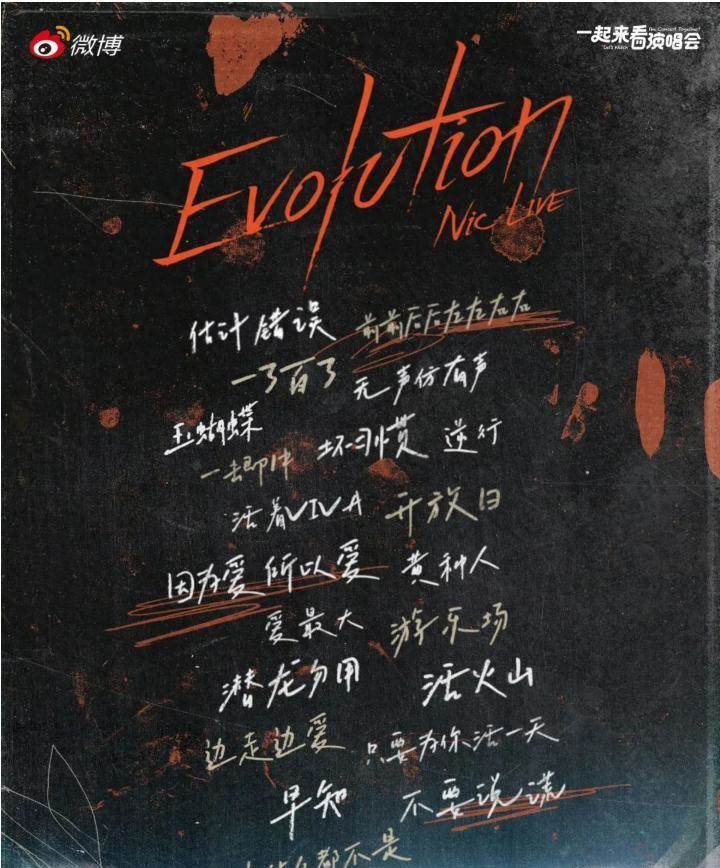 微博 一起来看演唱会
Evolution
Nic LIVE
估计错误 前前后后左左右右
一了百了 无声仿有声
玉蝴蝶
一击即中 坏习惯 逆行
活着VIVA 开放日
因为爱所以爱 黄种人
爱最大 游乐场
潜龙勿用 活火山
边走边爱 只要为你活一天
早知 不要说谎
都不是